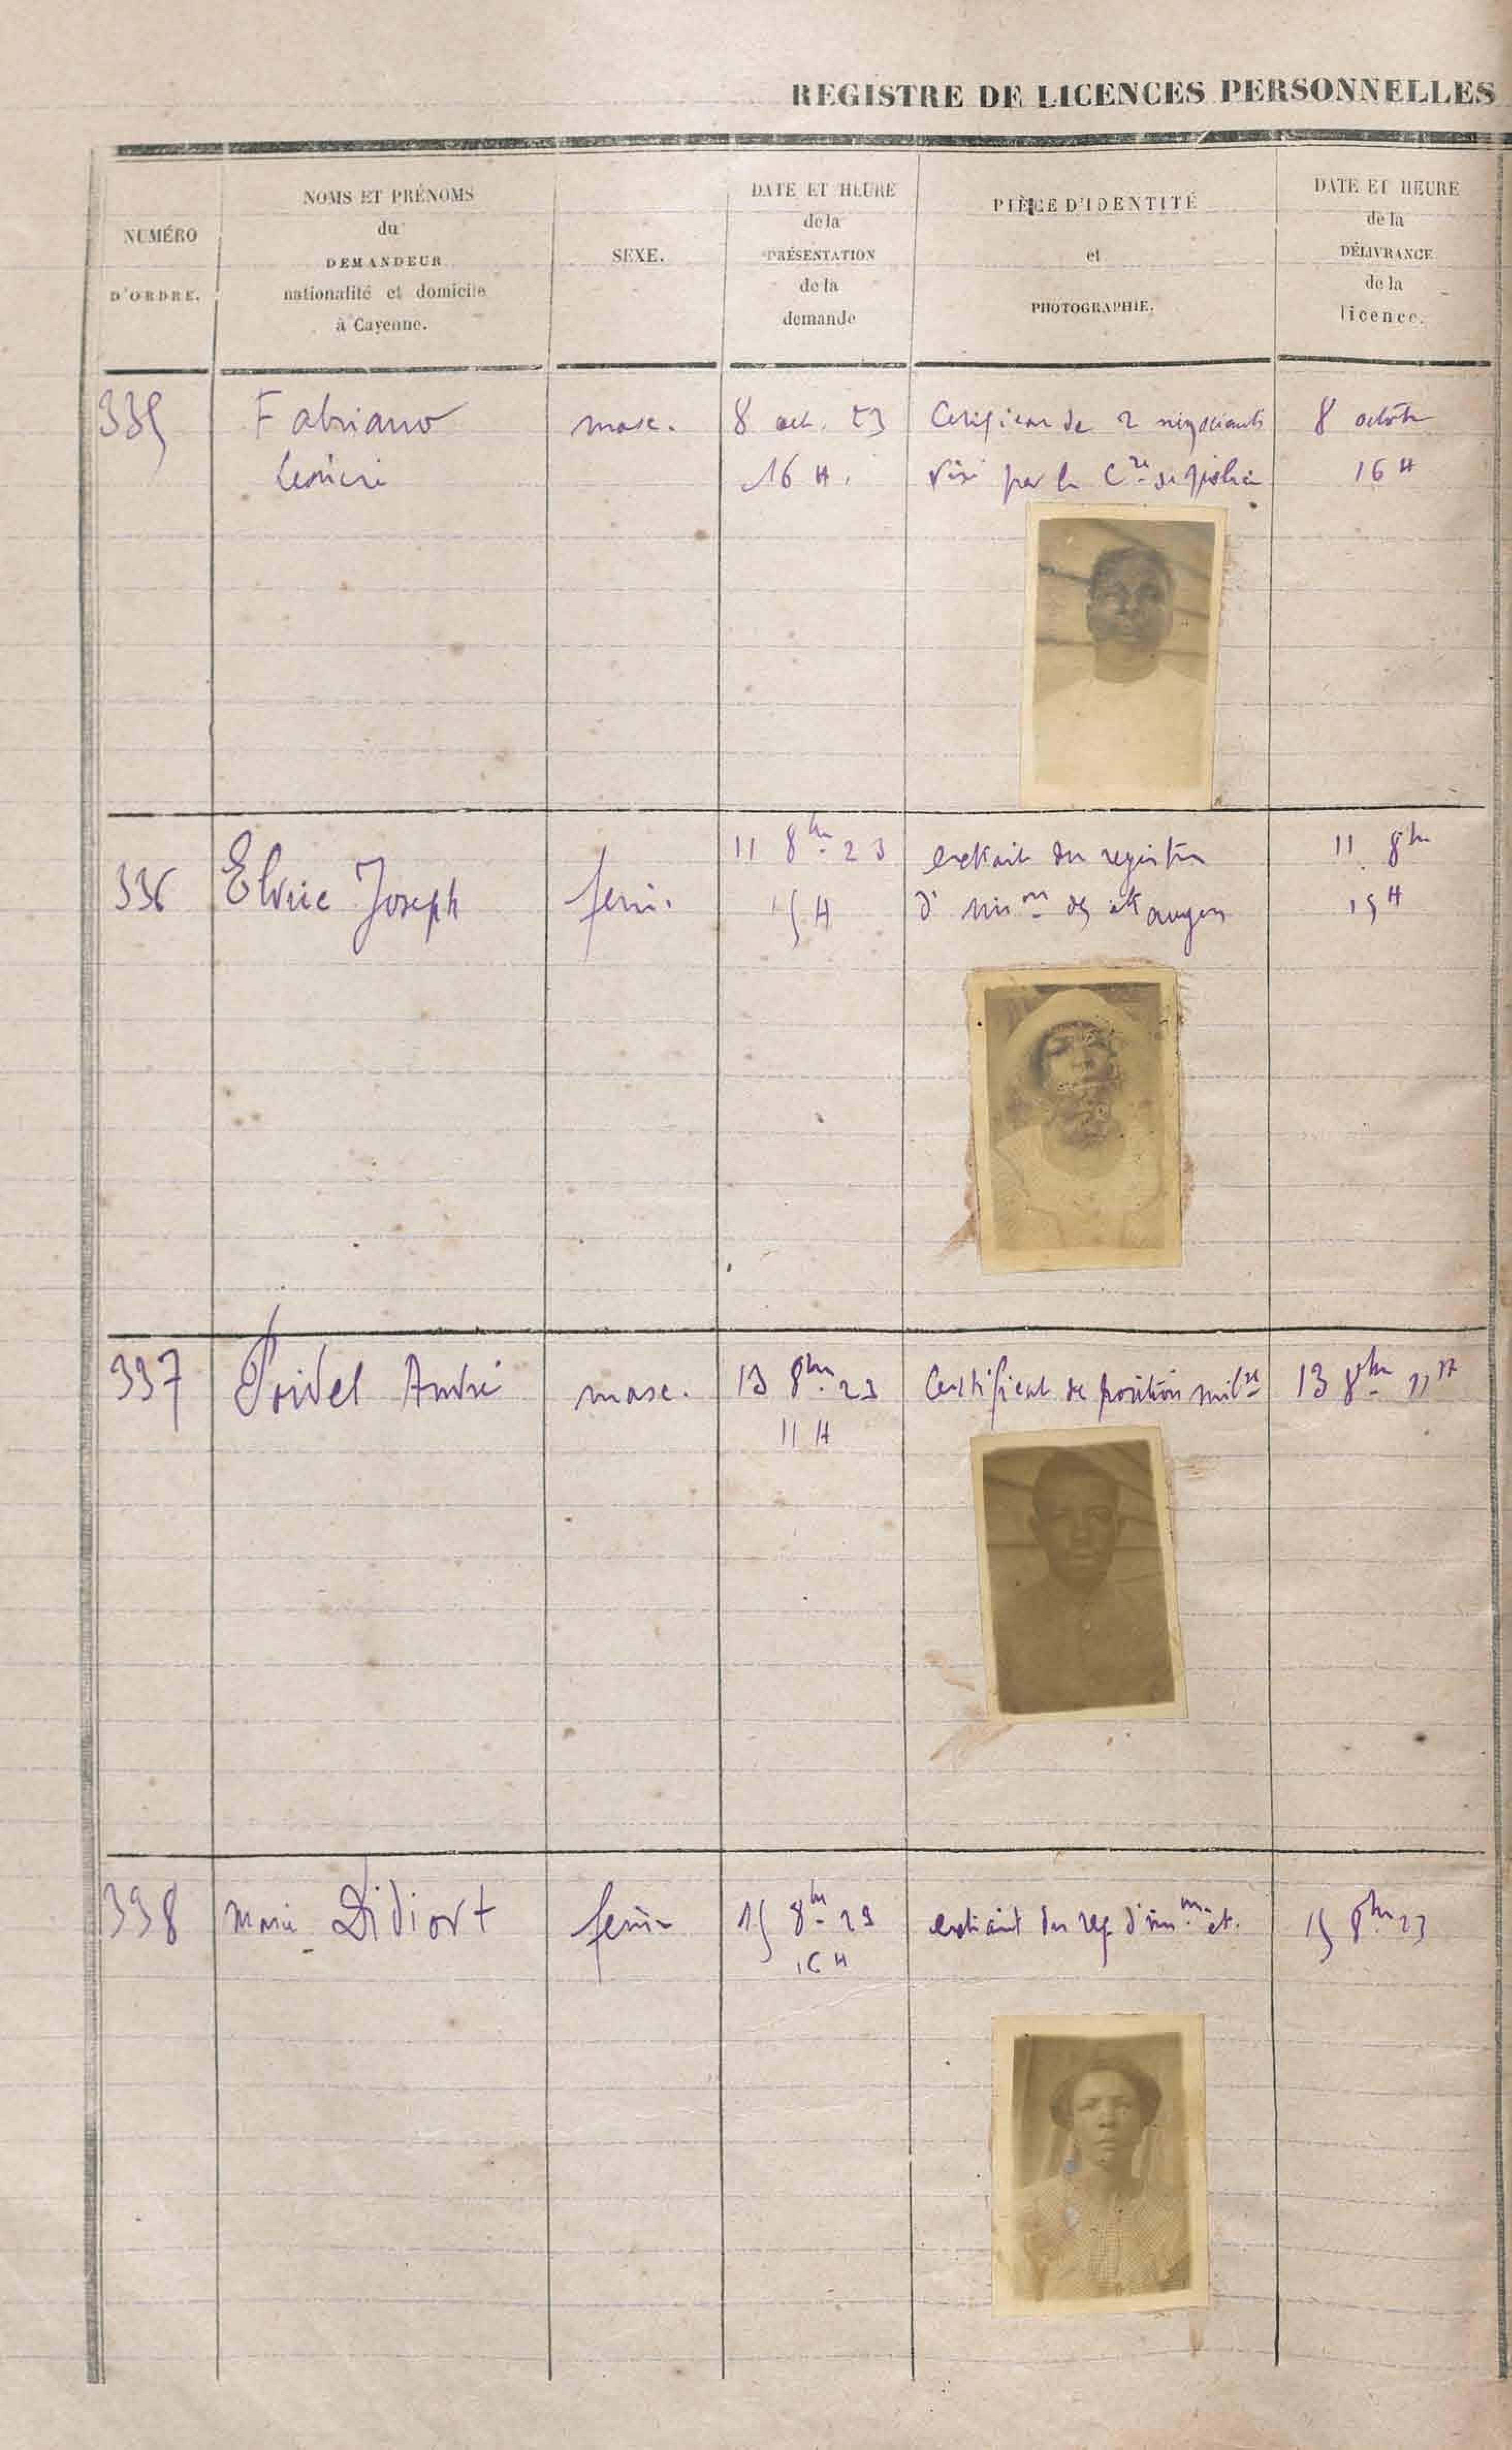 REGISTRE DE LICENCES PERSONNELLES
NUMÉRO
D'ORDRE.
NOMS ET PRÉNOMS
du
DEMANDEUR
nationalité et domicile
à Cayenne.
SEXE.
DATE ET HEURE
de la
PRÉSENTATION
de la
demande
PIÈCE D'IDENTITÉ
et
PHOTOGRAPHIE.
DATE ET HEURE
de la
DÉLIVRANCE
de la
licence.
335
Fabriano
masc.
8 oct. 23
16 H.
Certificat de 2 négociants
visé par le Cre de police
8 octobre
16 H
336
Elvrie Joseph
fem.
11 8bre 23
15 H
extrait du registre
d' immon des étrangers
11 8bre
15 H
337
Poidel André
masc.
13 8bre 23
11 H
Certificat de position milre
13 8bre 11 H
338
Marie Didiort
fem.
15 8bre 23
16 H
extrait du reg. d'imm et.
15 8bre 23